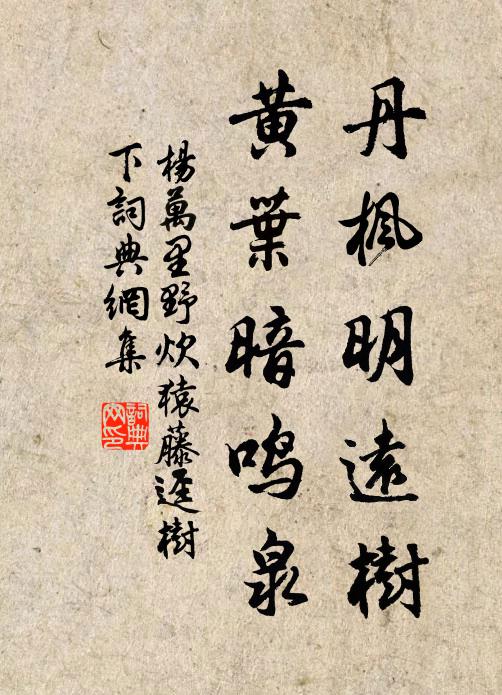 丹楓明遠樹
黄葉暗鳴泉
楊萬里野炊猿藤逕樹
下詞典網集
詞典
网印